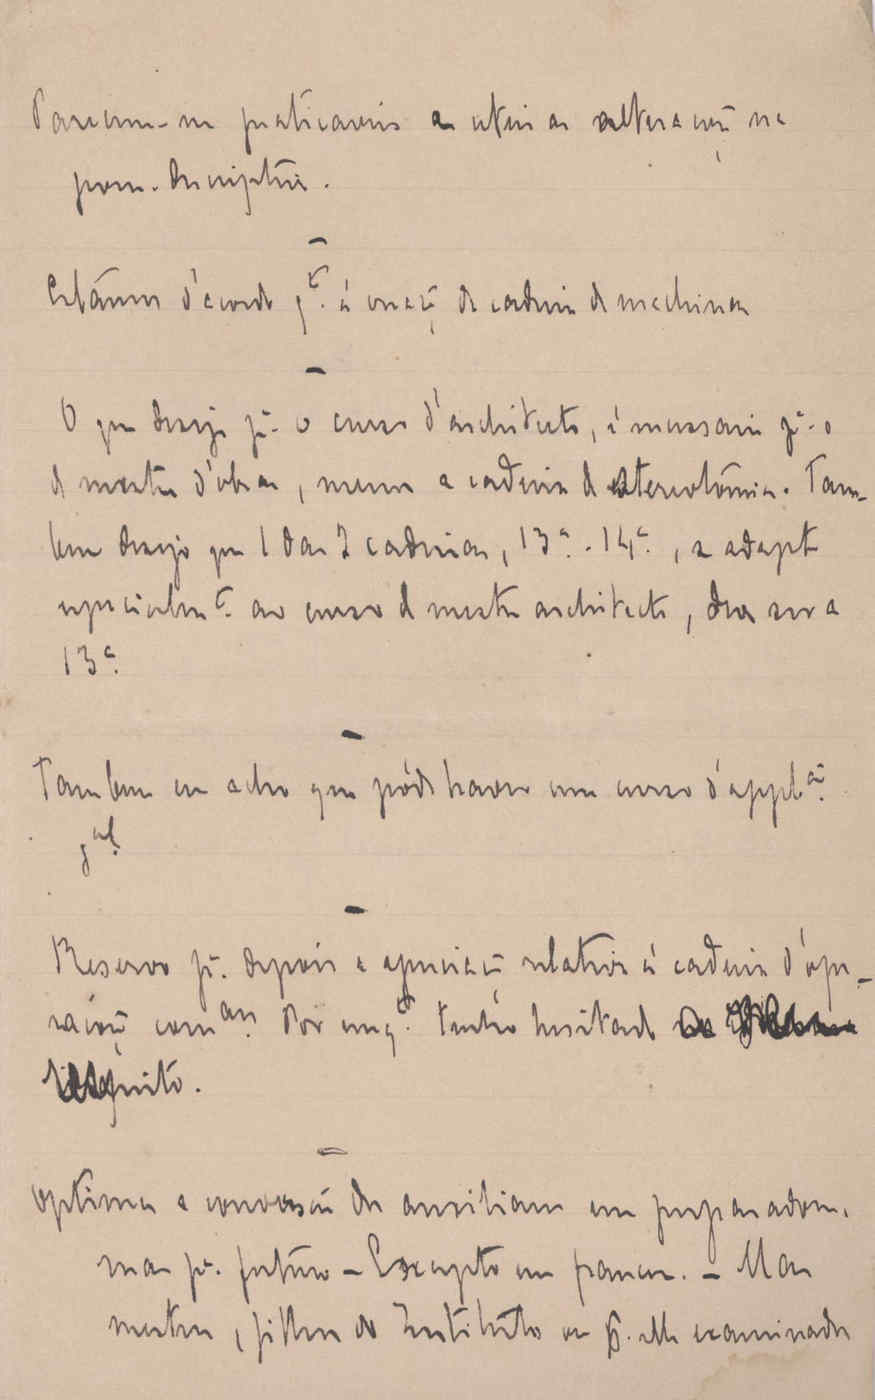 Parecem-me praticaveis e uteis as alterações na
geom. descriptiva.
Estâmos d'accordo q.to á creaçã da cadeira de machinas
O que desejo p.ª o curso d'architecto, é necessario p.ª o
de mestre d'obras, menos a cadeira de stereotomia. Tam-
bem desejo que 1 das 2 cadeiras, 13.ª - 14.ª, se adapte
especialm.te ao curso de mestre architecto, deve ser a
13.ª
Tambem eu acho que póde haver um curso d'appl.ão
g.al
Reservo p.ª depois a apreciaçã relativa á cadeira d'ope-
rações com.es Por emq.to tenho hesitado
Optima a conversã dos auxiliares em preparadores,
mas p.ª futuro - Excepto em francez. - Mas
mestres, filhos do Instituto ou p. elle examinados